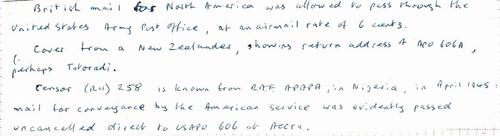 British mail for North America was allowed to pass through the
United States Army Post Office, at an airmail rate of 6 cents.
Cover from a New Zealander, showing return address of APO 606A,
perhaps Takoradi.
Censor (R11) 258 is known from RAF APAPA, in Nigeria, in April 1945:
mail for conveyance by the American service was evidently passed
uncancelled direct to USAPO 606 at Accra.